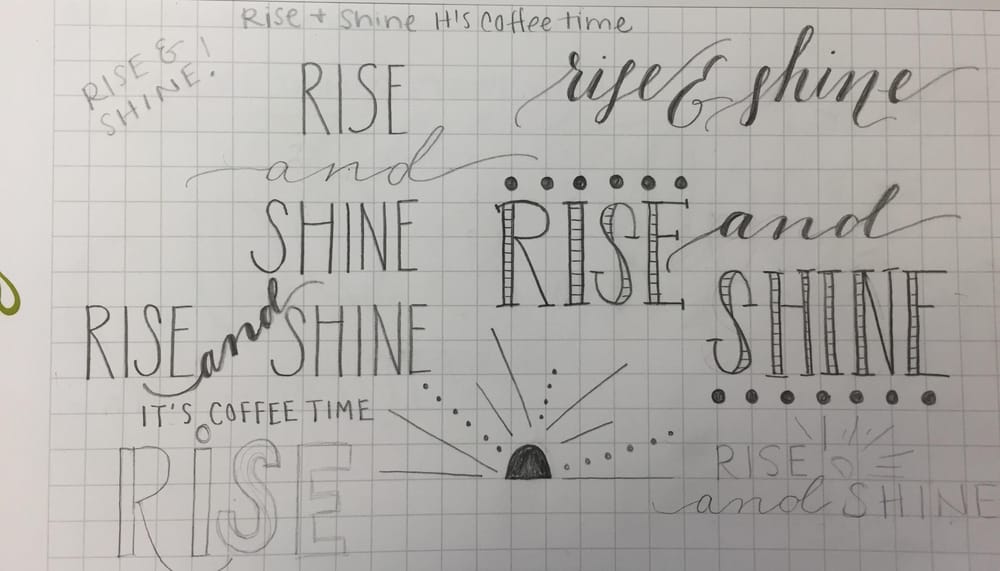 Rise + Shine It's Coffee time
RISE &
SHINE!
RISE
and
SHINE
rise & shine
RISE and
SHINE
RISE and SHINE
IT'S COFFEE TIME
RiSE
RISE
and SHINE